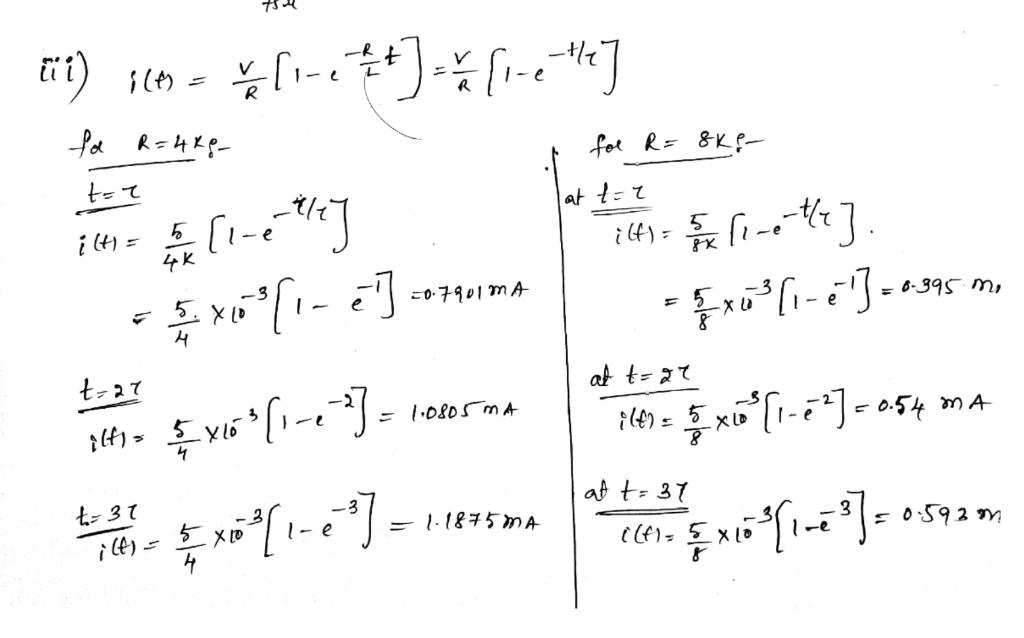 iii) i(t) = V/R [1-e^(-R/L t)] = V/R [1-e^(-t/τ)]
for R=4KΩ
t=τ
i(t) = 5/4K [1-e^(-τ/τ)]
= 5/4 × 10^-3 [1-e^-1] = 0.7901 mA
t=2τ
i(t) = 5/4 × 10^-3 [1-e^-2] = 1.0805 mA
t=3τ
i(t) = 5/4 × 10^-3 [1-e^-3] = 1.1875 mA
for R= 8KΩ
at t=τ
i(t) = 5/8K [1-e^(-t/τ)].
= 5/8 × 10^-3 [1-e^-1] = 0.395 m
at t=2τ
i(t) = 5/8 × 10^-3 [1-e^-2] = 0.54 mA
at t=3τ
i(t) = 5/8 × 10^-3 [1-e^-3] = 0.592 m